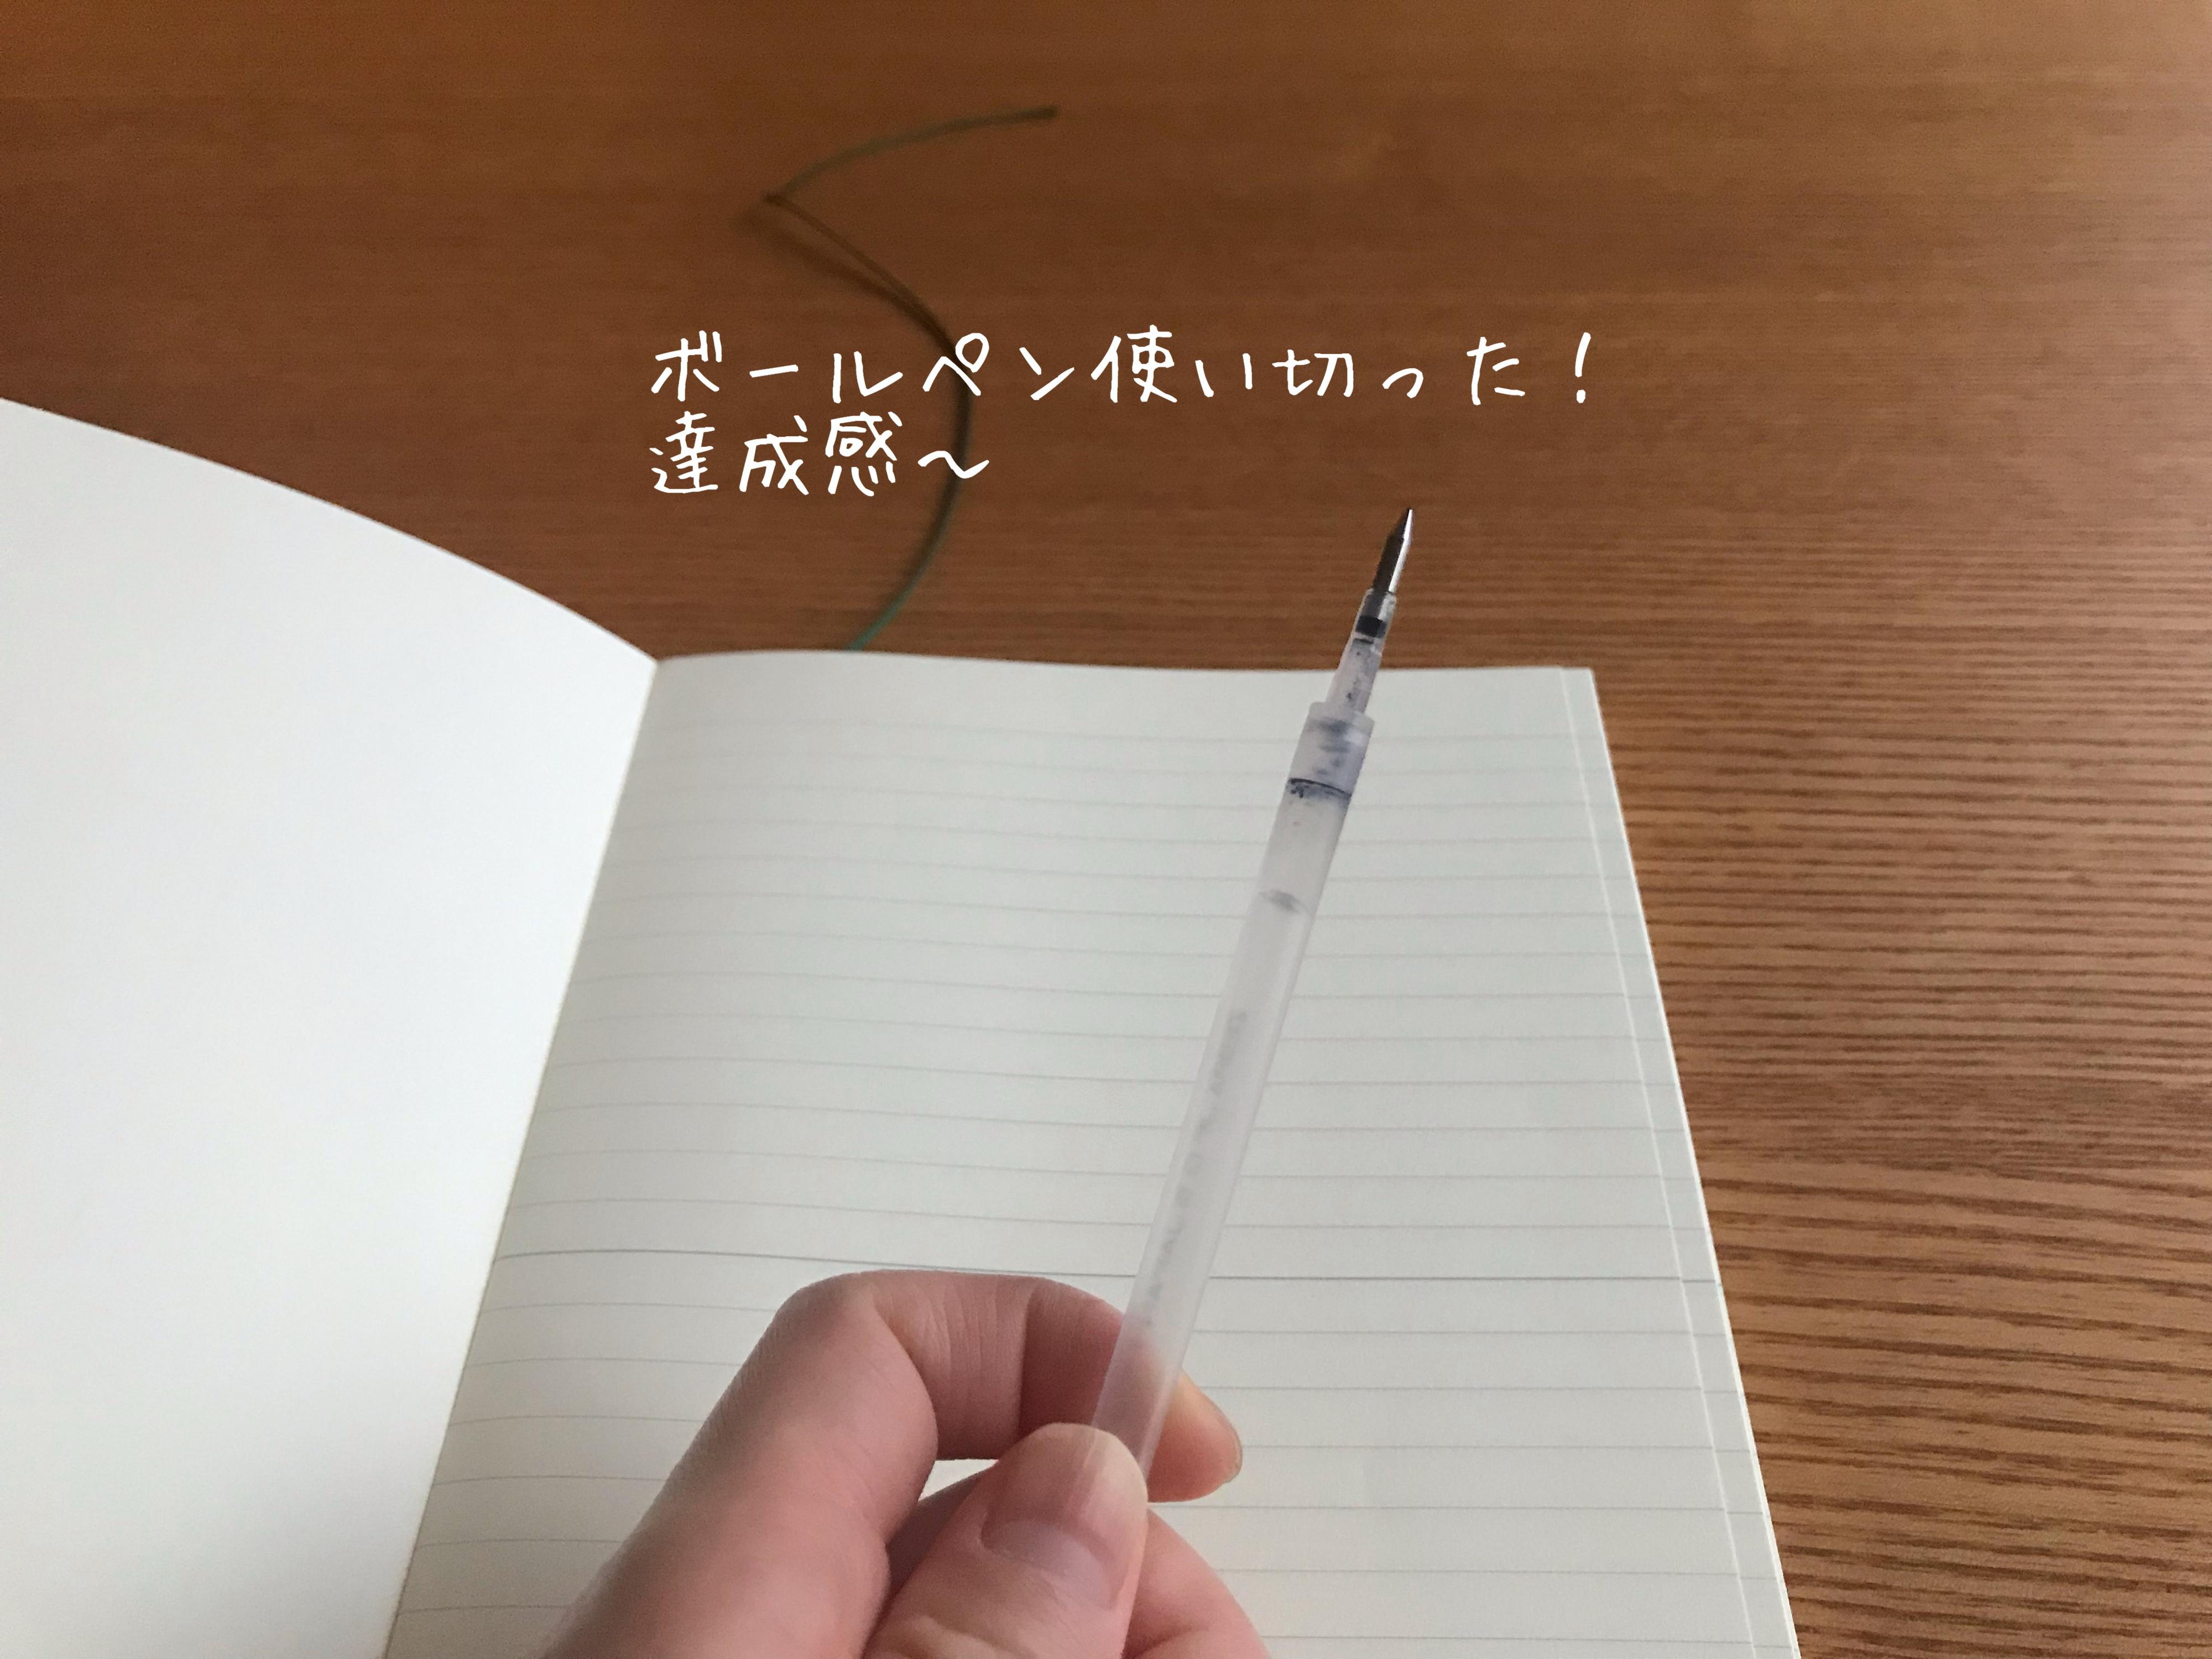 ボールペン使い切った！
達成感～